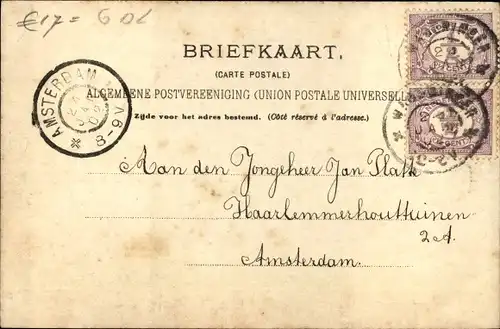 €17= G OL
BRIEFKAART.
(CARTE POSTALE)
ALGEMEENE POSTVEREENIGING (UNION POSTALE UNIVERSELLE)
Zijde voor het adres bestemd. (Côté réservé à l'adresse.)
AMSTERDAM
8-9V
Aan den Jongeheer Jan Platte
Haarlemmerhouttuinen
2d.
Amsterdam.